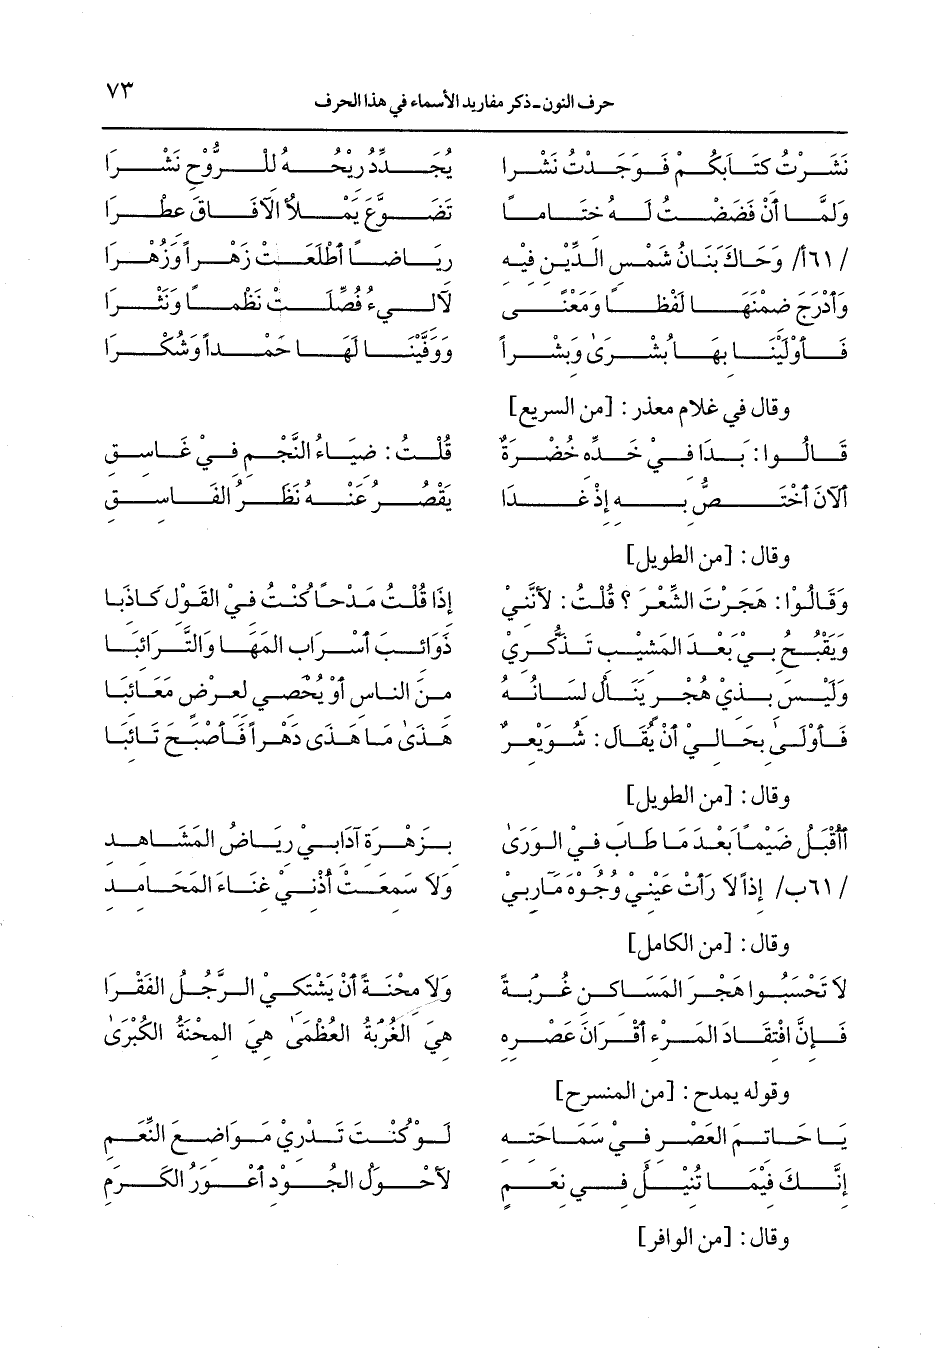 حرف النون ـ ذكر مفاريد الأسماء في هذا الحرف ٧٣
نَشَرْتُ كتَابَكُمْ فَوَجَدْتُ نَشْرا يُجَدِّدُ ريْحُهُ للرُّوْحِ نَشْرَا
وَلمَّا أنْ فَضَضْتُ لَهُ ختَاماً تَضَوَّعَ يَمْلأُ الآفَاقَ عطْرَا
/٦١أ/ وَحَاكَ بَنَانُ شَمْسِ الدِّيْنِ فيْه ريَاضاً أطْلَعَتْ زَهْراً وَزُهْرَا
وَأدْرَجَ ضمْنَهَا لَفْظاً وَمَعْنَى لآلىءُ فُصِّلَتْ نَظْماً وَنَثْرَا
فَأوْلَيْنَا بهَا بُشْرَىٰ وَبشْراً وَوَفَّيْنَا لَهَا حَمْداً وَشُكْرَا
وقال في غلام معذر: [من السريع]
قَالُوا: بَدَا فيْ خَدِّه خُضْرَةٌ قُلْتُ: ضيَاءُ النَّجْمِ فيْ غَاسِقِ
ألآنَ أخْتَصُّ به إذْ غَدَا يَقْصُرُ عَنْهُ نَظَرُ الفَاسِقِ
وقال: [من الطويل]
وَقَالُوْا: هَجَرْتَ الشِّعْرَ؟ قُلْتُ: لأنَّنيْ إذَا قُلْتُ مَدْحاً كُنْتُ فيْ القَوْل كَاذبَا
وَيَقْبُحُ بيْ بَعْدَ المَشيْبِ تَذَكُّريْ ذَوائبَ أسْرَابِ المَهَا وَالتَّرَائبَا
وَلَيْسَ بذيْ هُجْرٍ يَنَالُ لسَانُهُ منَ الناسِ أوْ يُحْصي لعرْضٍ مَعَائبَا
فَأوْلَىٰ بحَاليْ أنْ يُقَالَ: شُوَيْعرٌ هَذَىٰ مَا هَذَى دَهْراً فَأصْبَحَ تَائبَا
وقال: [من الطويل]
أأقْبَلُ ضَيْماً بَعْدَ مَا طَابَ فيْ الوَرَىٰ بزَهْرَة آدَابيْ ريَاضُ المَشَاهدِ
/٦١ب/ إذاً لاَ رَأتْ عَيْنيْ وُجُوْهَ مَآربيْ وَلاَ سَمعَتْ أُذْنيْ غنَاءَ المَحَامدِ
وقال: [من الكامل]
لاَ تَحْسَبُوا هَجْرَ المَسَاكنِ غُرْبَةً وَلاَ محْنَةً أنْ يَشْتَكيْ الرَّجُلُ الفَقْرَا
فَإنَّ افْتقَادَ المَرْء أقْرَانَ عَصْره هيَ الغُرْبَةُ العُظْمَىٰ هيَ المحْنَةُ الكُبْرَىٰ
وقوله يمدح: [من المنسرح]
يَا حَاتمَ العَصْرِ فيْ سَمَاحَته لَوْ كُنْتَ تَدْريْ مَوَاضعَ النِّعَمِ
إنَّكَ فيْمَا تُنيْلُ في نعَمٍ لأحْوَلُ الجُوْد أعْوَرُ الكَرَمِ
وقال: [من الوافر]